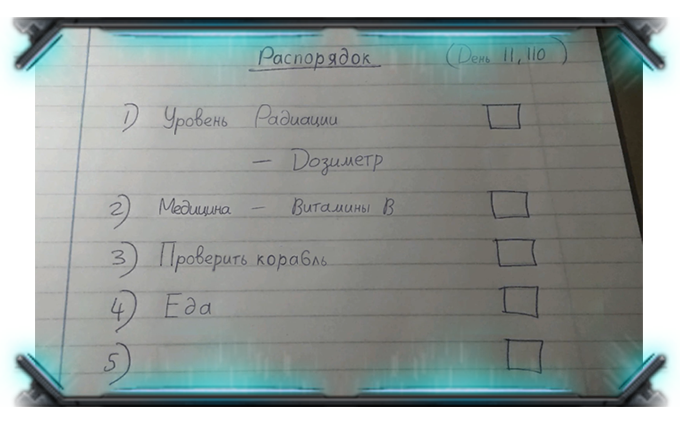 Распорядок (День 11,110)
1) Уровень Радиации
— Дозиметр
2) Медицина — Витамины В
3) Проверить корабль
4) Еда
5)